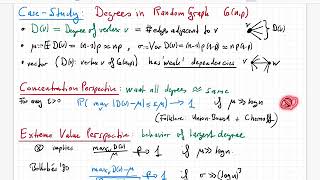 Case-Study: Degrees in Random Graph G(n,p)
• D(v) = Degree of vertex v = #edges adjacent to v
• μ := E D(v) = (n-1)p ≈ np , σ = Var D(v) = (n-1)p(1-p) ≈ np
• vector (D(v): vertex v of G(n,p)) has 'weak' dependencies
Concentration Perspective: want all degrees ≈ same
For any ε>0 P( max |D(v)-μ| ≤ εμ ) → 1 if μ ≫ log n
(Folklore: Union-Bound + Chernoff)
Extreme Value Perspective: behavior of largest degree
implies max D(v) / μ →p 1 if μ ≫ log n
Bollobás '80 max D(v)-μ →p 1 if σ ≫ (log n)³